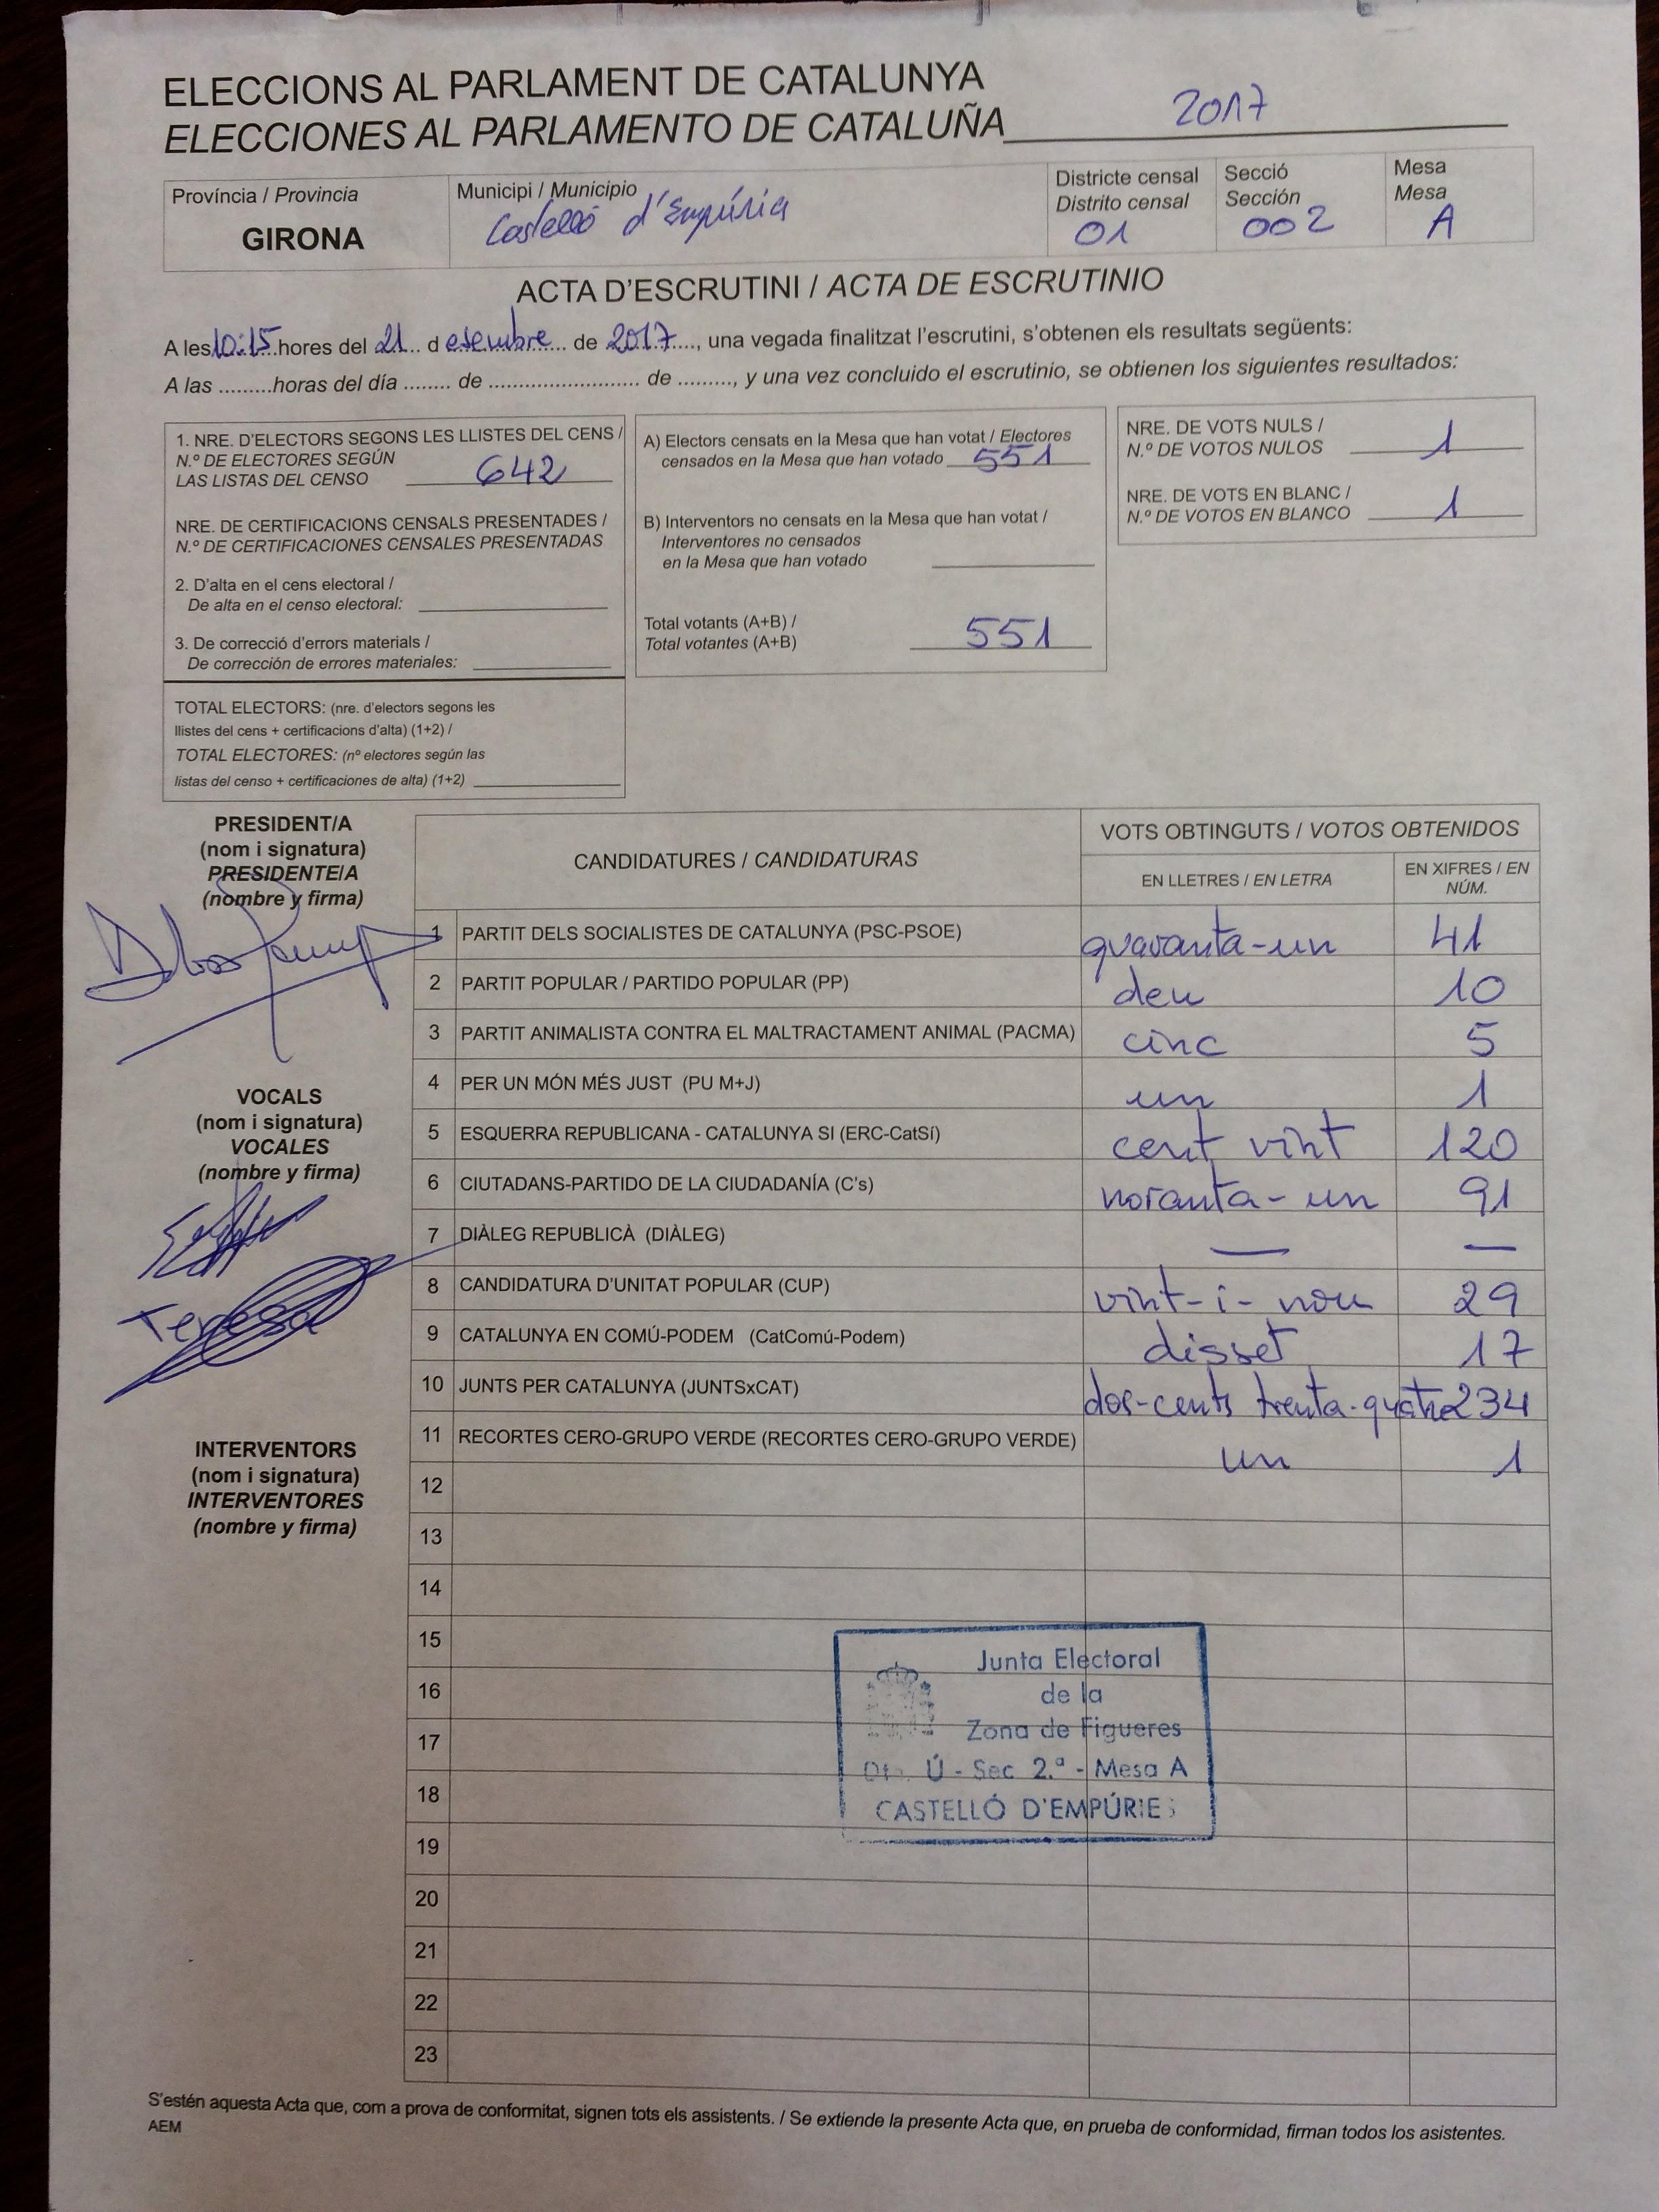 ELECCIONS AL PARLAMENT DE CATALUNYA
ELECCIONES AL PARLAMENTO DE CATALUÑA 2017
Província / Provincia
GIRONA
Municipi / Municipio
Castelló d'Empúria
Districte censal
Distrito censal
01
Secció
Sección
002
Mesa
Mesa
A
ACTA D'ESCRUTINI / ACTA DE ESCRUTINIO
A les 10:15 hores del 21 d esembre de 2017, una vegada finalitzat l'escrutini, s'obtenen els resultats següents:
A las .........horas del día ........ de .......................... de ........., y una vez concluido el escrutinio, se obtienen los siguientes resultados:
1. NRE. D'ELECTORS SEGONS LES LLISTES DEL CENS /
N.º DE ELECTORES SEGÚN
LAS LISTAS DEL CENSO 642
NRE. DE CERTIFICACIONS CENSALS PRESENTADES /
N.º DE CERTIFICACIONES CENSALES PRESENTADAS
2. D'alta en el cens electoral /
De alta en el censo electoral:
3. De correcció d'errors materials /
De corrección de errores materiales:
TOTAL ELECTORS: (nre. d'electors segons les
llistes del cens + certificacions d'alta) (1+2) /
TOTAL ELECTORES: (nº electores según las
listas del censo + certificaciones de alta) (1+2)
A) Electors censats en la Mesa que han votat / Electores
censados en la Mesa que han votado 551
B) Interventors no censats en la Mesa que han votat /
Interventores no censados
en la Mesa que han votado
Total votants (A+B) /
Total votantes (A+B) 551
NRE. DE VOTS NULS /
N.º DE VOTOS NULOS 1
NRE. DE VOTS EN BLANC /
N.º DE VOTOS EN BLANCO 1
PRESIDENT/A
(nom i signatura)
PRESIDENTE/A
(nombre y firma)
VOCALS
(nom i signatura)
VOCALES
(nombre y firma)
Teresa
INTERVENTORS
(nom i signatura)
INTERVENTORES
(nombre y firma)
CANDIDATURES / CANDIDATURAS
VOTS OBTINGUTS / VOTOS OBTENIDOS
EN LLETRES / EN LETRA
EN XIFRES / EN
NÚM.
1 PARTIT DELS SOCIALISTES DE CATALUNYA (PSC-PSOE) quaranta-un 41
2 PARTIT POPULAR / PARTIDO POPULAR (PP) deu 10
3 PARTIT ANIMALISTA CONTRA EL MALTRACTAMENT ANIMAL (PACMA) cinc 5
4 PER UN MÓN MÉS JUST (PU M+J) un 1
5 ESQUERRA REPUBLICANA - CATALUNYA SI (ERC-CatSí) cent vint 120
6 CIUTADANS-PARTIDO DE LA CIUDADANÍA (C's) noranta-un 91
7 DIÀLEG REPUBLICÀ (DIÀLEG) — —
8 CANDIDATURA D'UNITAT POPULAR (CUP) vint-i-nou 29
9 CATALUNYA EN COMÚ-PODEM (CatComú-Podem) disset 17
10 JUNTS PER CATALUNYA (JUNTSxCAT) dos-cents trenta-quatre 234
11 RECORTES CERO-GRUPO VERDE (RECORTES CERO-GRUPO VERDE) un 1
12
13
14
15
16
17
18
19
20
21
22
23
Junta Electoral
de la
Zona de Figueres
Ú - Sec 2.ª - Mesa A
CASTELLÓ D'EMPÚRIES
S'estén aquesta Acta que, com a prova de conformitat, signen tots els assistents. / Se extiende la presente Acta que, en prueba de conformidad, firman todos los asistentes.
AEM